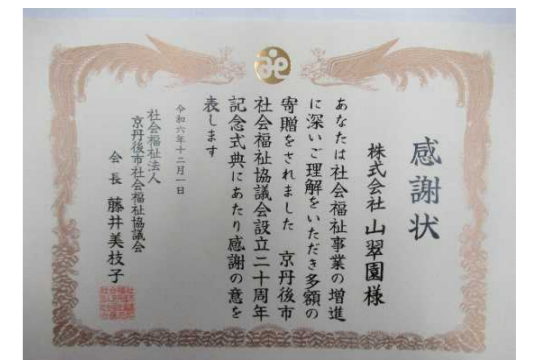 感謝状
株式会社 山翠園 様
あなたは社会福祉事業の増進
に深いご理解をいただき多額の
寄贈をされました 京丹後市
社会福祉協議会設立二十周年
記念式典にあたり感謝の意を
表します
令和六年十二月一日
社会福祉法人
京丹後市社会福祉協議会
会長 藤井美枝子